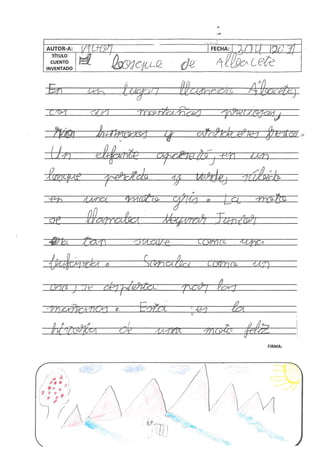 AUTOR-A: VICTOR FECHA: 3/04/2021
TÍTULO
CUENTO
INVENTADO El bosque de Albacete
En un lugar llamado Albacete,
con un montañas preciosas,
humanos y
Un elefante apareció, en un
bosque perdido y verde, subido
en una moto gris. La moto
se llamaba Junior
era tan suave como una
bufanda. Sonaba como un
oso, se despierta por las
mañanas. Esta es la
historia de una moto feliz
FIRMA: